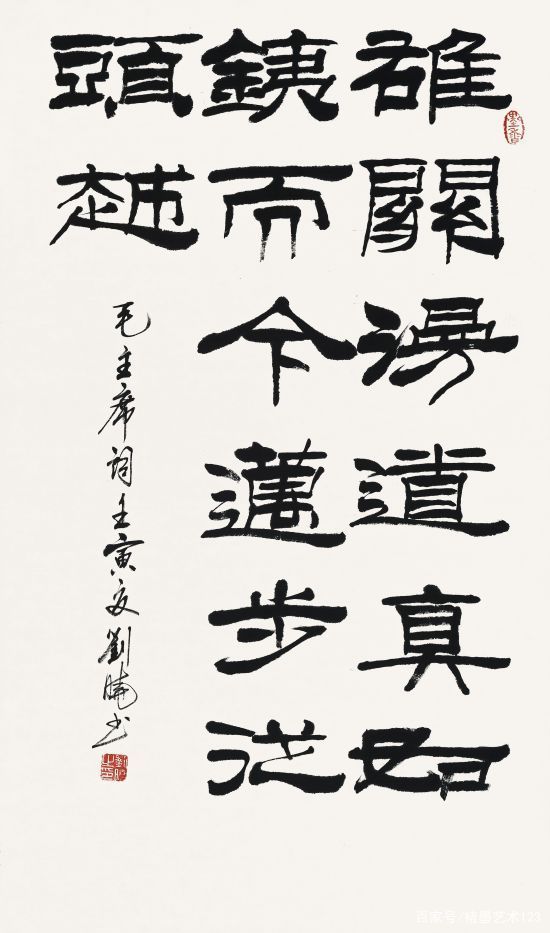 雄關漫道真如
鐵而今邁步從
頭越
毛主席詞壬寅夏劉曉書
百家号/精墨艺术123